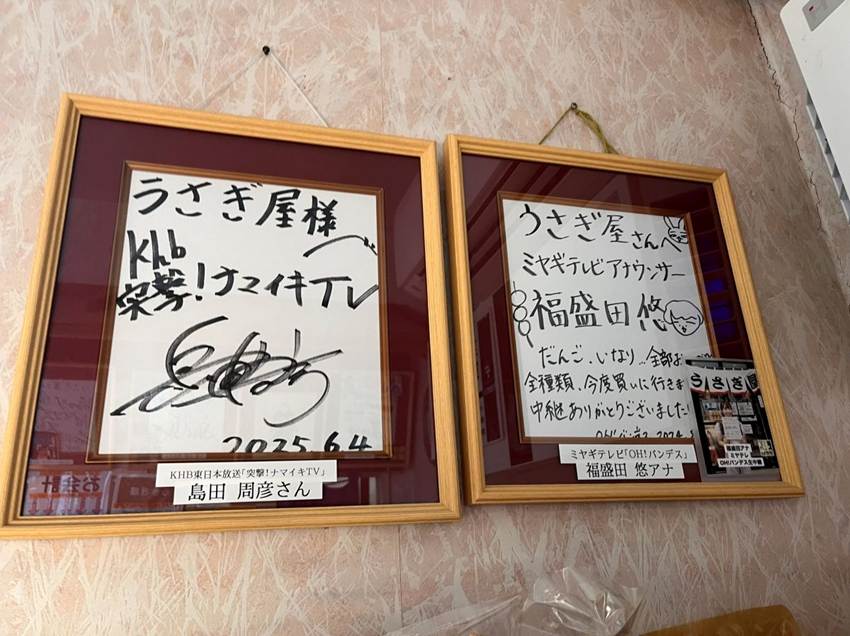 うさぎ屋様へ
khb
突撃!ナマイキTV
2025.6.4
KHB東日本放送「突撃!ナマイキTV」
島田 周彦さん
お会計
うさぎ屋さんへ
ミヤギテレビアナウンサー
福盛田 悠
だんご、いなり…全部お
全種類、今度買いに行きま
中継ありがとうございました!
ミヤギテレビ「OH!バンデス」
福盛田 悠アナ
うさぎ屋
福盛田アナ
ミヤテレ
OH!バンデス生中継